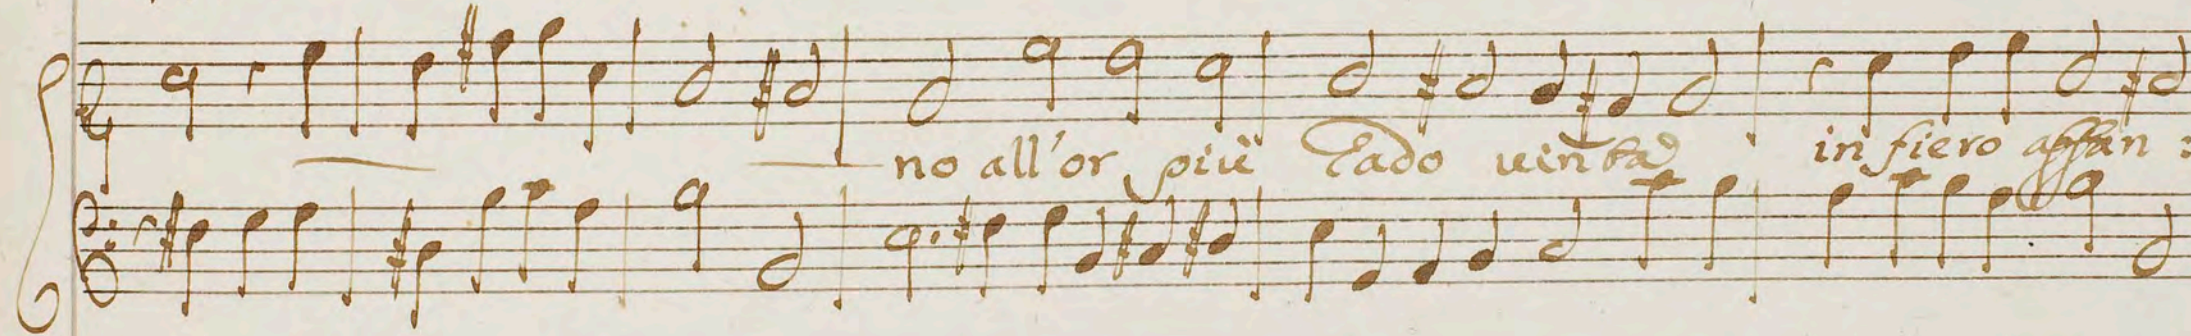 no all'or più cado uinta in fiero affan: